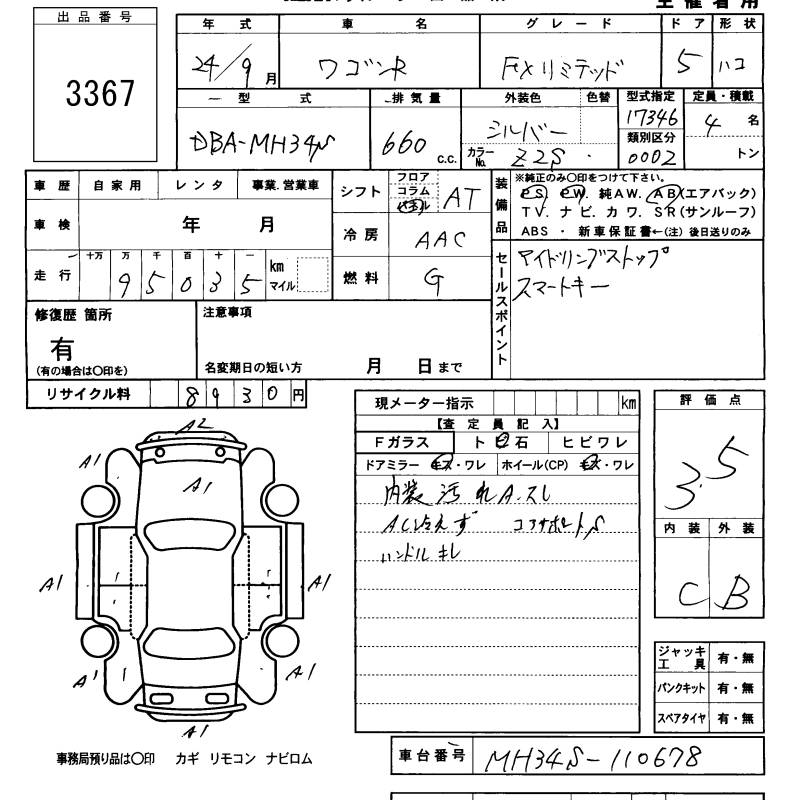 主催者用
出品番号
3367
年式 車名 グレード ドア 形状
24/9月 ワゴンR FXリミテッド 5 ハコ
型式 排気量 外装色 色替 型式指定 定員・積載
DBA-MH34S 660 c.c. シルバー 17346 4名
カラーNo. Z2S 類別区分 0002 トン
車歴 自家用 レンタ 事業.営業車
車検 年 月
走行 十万 万 千 百 十 一
95035 km マイル
シフト フロア コラム パネル AT
冷房 AAC
燃料 G
装備品 ※純正のみ〇印をつけて下さい。
PS. PW. 純AW. AB(エアバック)
TV. ナビ. カワ. SR(サンルーフ)
ABS ・ 新車保証書←(注) 後日送りのみ
セールスポイント
アイドリングストップ
スマートキー
修復歴 箇所
有
(有の場合は〇印を)
注意事項
名変期日の短い方 月 日まで
リサイクル料 8930円
現メーター指示 km
【査定員記入】
Fガラス ト石 ヒビワレ
ドアミラー キズ・ワレ ホイール(CP) キズ・ワレ
内装 汚れA.スレ
AC冷えず コアサポートS
ハンドル キレ
評価点
3.5
内装 外装
C B
ジャッキ工具 有・無
パンクキット 有・無
スペアタイヤ 有・無
A2
A1
A1
A1
A1
A1
A1
A1
A1
事務局預り品は〇印 カギ リモコン ナビロム
車台番号 MH34S-110678